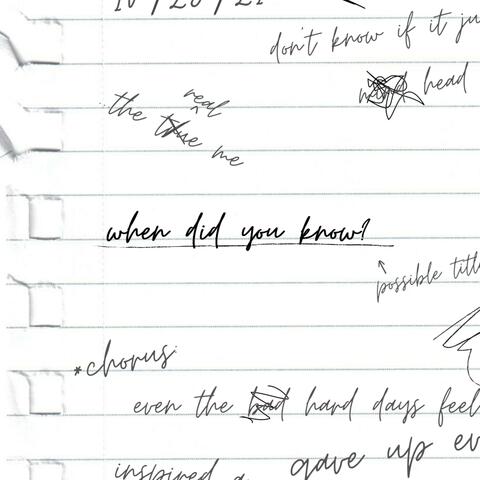 10/28/21
don't know if it ju
head
real
the true me
when did you know?
possible titl
*chorus:
even the bad hard days feel
inspired a
gave up ev